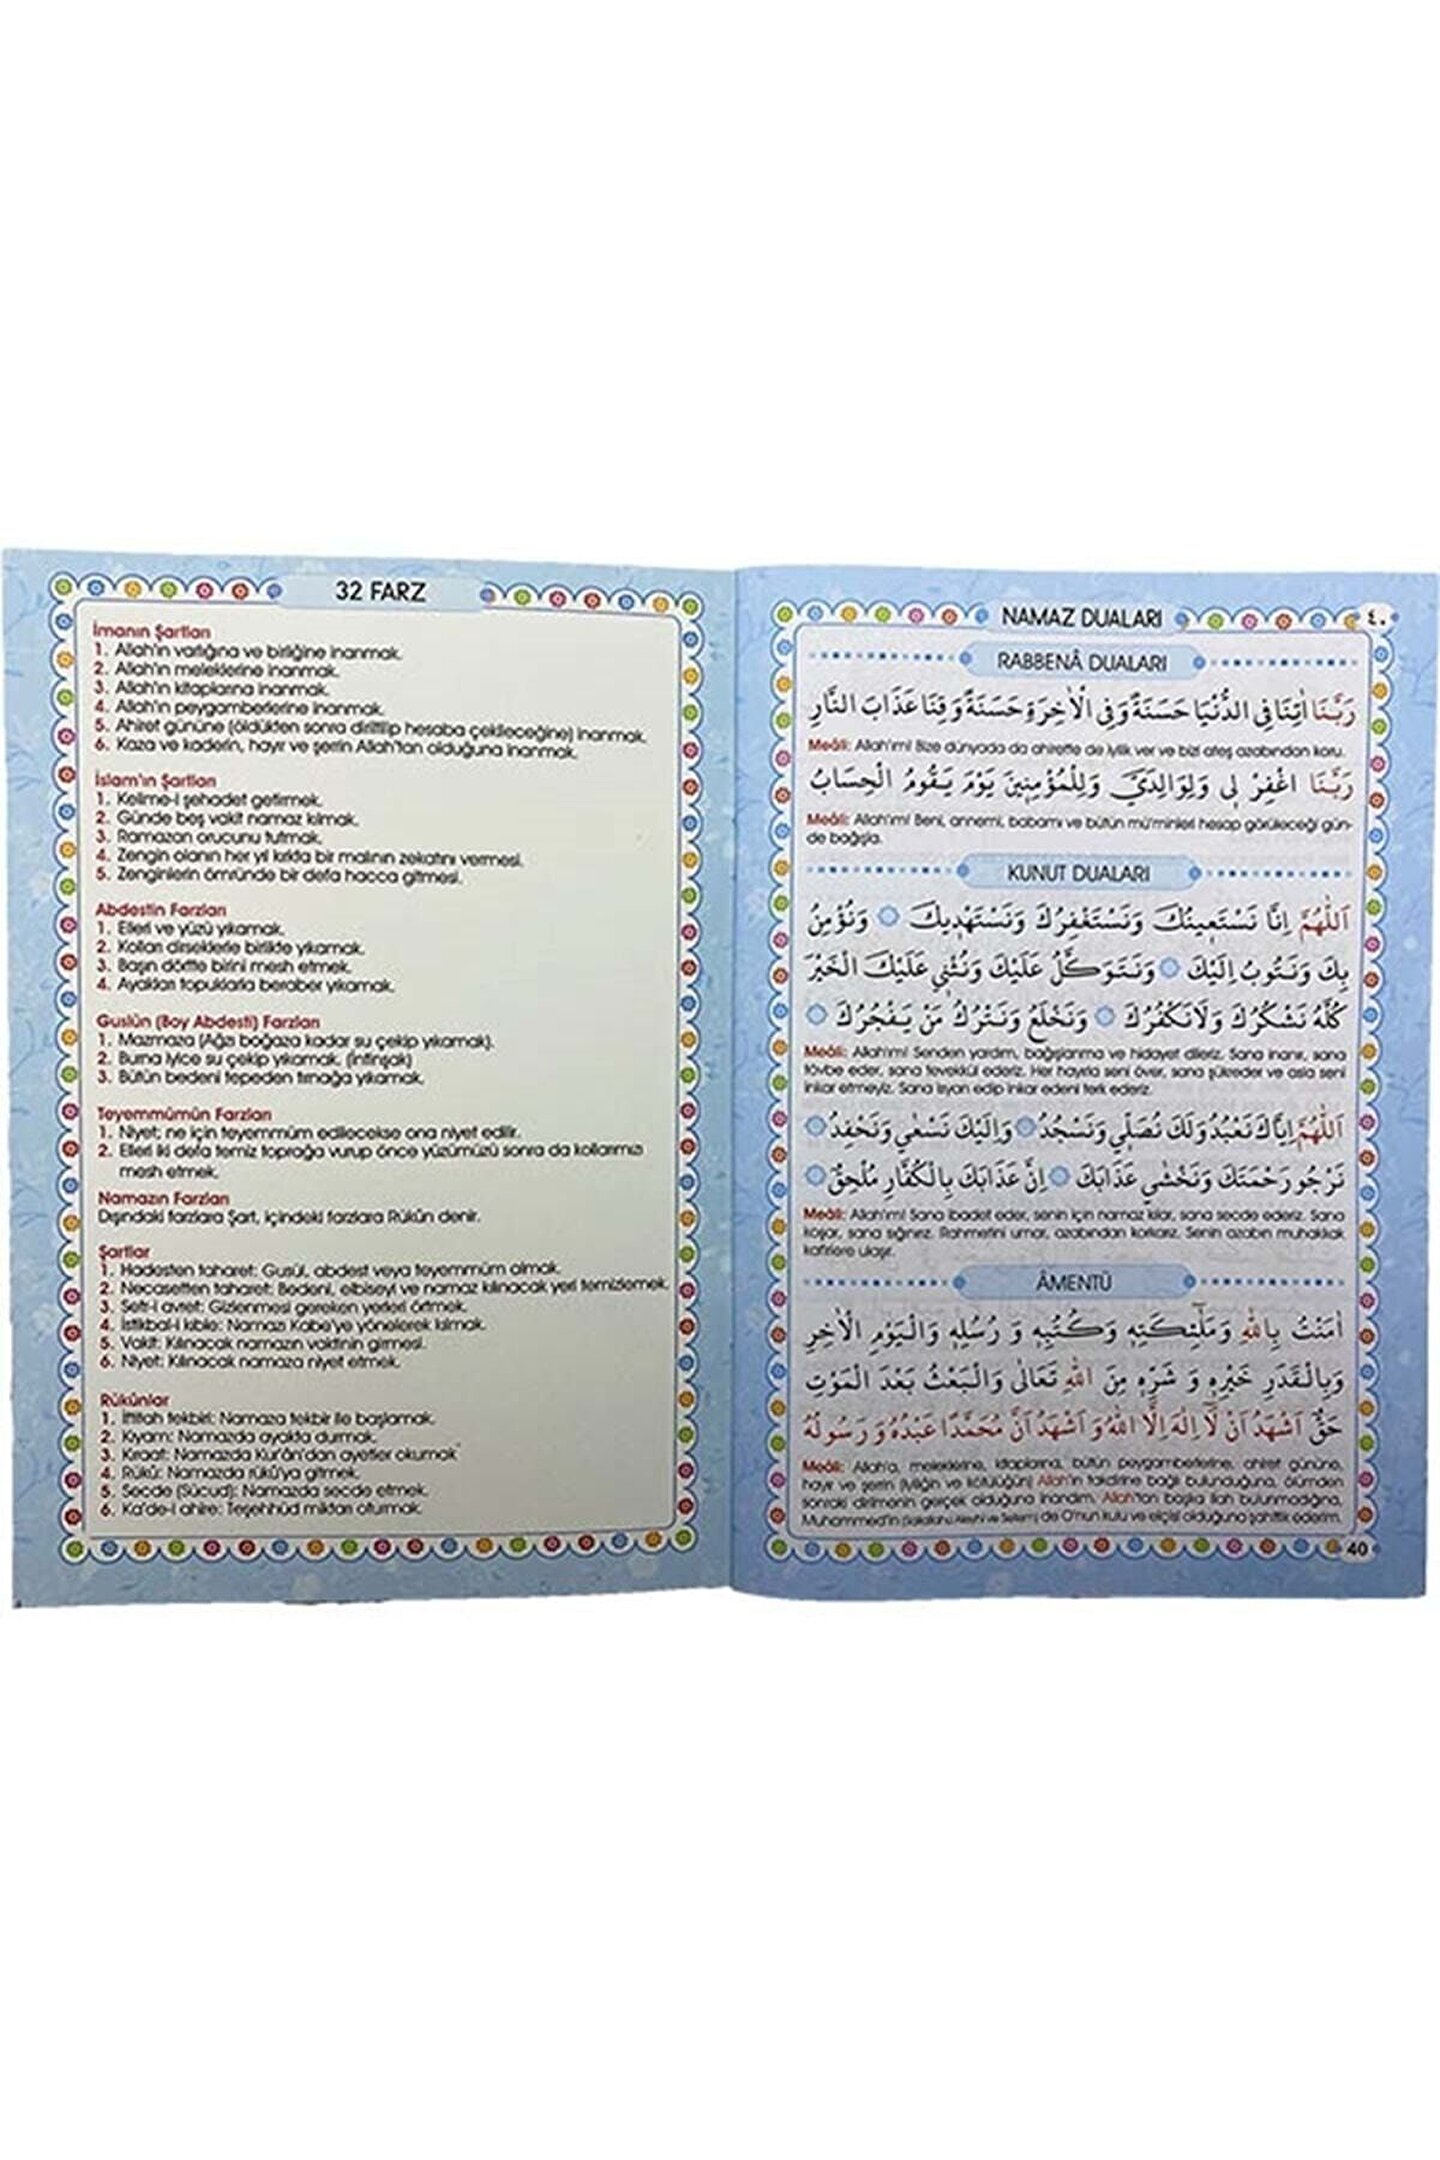 32 FARZ
İmanın Şartları
1. Allah'ın varlığına ve birliğine inanmak.
2. Allah'ın meleklerine inanmak.
3. Allah'ın kitaplarına inanmak.
4. Allah'ın peygamberlerine inanmak.
5. Ahiret gününe (öldükten sonra diriltilip hesaba çekileceğine) inanmak.
6. Kaza ve kaderin, hayır ve şerrin Allah'tan olduğuna inanmak.
İslam'ın Şartları
1. Kelime-i şehadet getirmek.
2. Günde beş vakit namaz kılmak.
3. Ramazan orucunu tutmak.
4. Zengin olanın her yıl kırkta bir malının zekatını vermesi.
5. Zenginlerin ömründe bir defa hacca gitmesi.
Abdestin Farzları
1. Elleri ve yüzü yıkamak.
2. Kolları dirseklerle birlikte yıkamak.
3. Başın dörtte birini mesh etmek.
4. Ayakları topuklarla beraber yıkamak.
Guslün (Boy Abdesti) Farzları
1. Mazmaza (Ağzı boğaza kadar su çekip yıkamak).
2. Burna iyice su çekip yıkamak. (İntinşak)
3. Bütün bedeni tepeden tırnağa yıkamak.
Teyemmümün Farzları
1. Niyet; ne için teyemmüm edilecekse ona niyet edilir.
2. Elleri iki defa temiz toprağa vurup önce yüzümüzü sonra da kollarımızı
mesh etmek.
Namazın Farzları
Dışındaki farzlara Şart, içindeki farzlara Rükün denir.
Şartlar
1. Hadesten taharet: Gusül, abdest veya teyemmüm almak.
2. Necasetten taharet: Bedeni, elbiseyi ve namaz kılınacak yeri temizlemek.
3. Setr-i avret: Gizlenmesi gereken yerleri örtmek.
4. İstikbal-i kıble: Namazı Kabe'ye yönelerek kılmak.
5. Vakit: Kılınacak namazın vaktinin girmesi.
6. Niyet: Kılınacak namaza niyet etmek.
Rükünlar
1. İftitah tekbiri: Namaza tekbir ile başlamak.
2. Kıyam: Namazda ayakta durmak.
3. Kıraat: Namazda Kur'ân'dan ayetler okumak
4. Rükû: Namazda rükû'ya gitmek.
5. Secde (Sücud): Namazda secde etmek.
6. Ka'de-i ahire: Teşehhüd miktarı oturmak.
NAMAZ DUALARI
٤٠
RABBENÂ DUALARI
رَبَّنَا اٰتِنَا فِي الدُّنْيَا حَسَنَةً وَفِي الْاٰخِرَةِ حَسَنَةً وَقِنَا عَذَابَ النَّارِ
Meâli: Allah'ım! Bize dünyada da ahirette de iyilik ver ve bizi ateş azabından koru.
رَبَّنَا اغْفِرْ لِي وَلِوَالِدَيَّ وَلِلْمُؤْمِنِينَ يَوْمَ يَقُومُ الْحِسَابُ
Meâli: Allah'ım! Beni, annemi, babamı ve bütün mü'minleri hesap görüleceği gün-
de bağışla.
KUNUT DUALARI
اَللّٰهُمَّ اِنَّا نَسْتَعِينُكَ وَنَسْتَغْفِرُكَ وَنَسْتَهْدِيكَ وَنُؤْمِنُ
بِكَ وَنَتُوبُ اِلَيْكَ وَنَتَوَكَّلُ عَلَيْكَ وَنُثْنِي عَلَيْكَ الْخَيْرَ
كُلَّهُ نَشْكُرُكَ وَلَا نَكْفُرُكَ وَنَخْلَعُ وَنَتْرُكُ مَنْ يَفْجُرُكَ
Meâli: Allah'ım! Senden yardım, bağışlanma ve hidayet dileriz. Sana inanır, sana
tövbe eder, sana tevekkül ederiz. Her hayırla seni över, sana şükreder ve asla seni
inkar etmeyiz. Sana isyan edip inkar edeni terk ederiz.
اَللّٰهُمَّ اِيَّاكَ نَعْبُدُ وَلَكَ نُصَلِّي وَنَسْجُدُ وَاِلَيْكَ نَسْعٰى وَنَحْفِدُ
نَرْجُو رَحْمَتَكَ وَنَخْشٰى عَذَابَكَ اِنَّ عَذَابَكَ بِالْكُفَّارِ مُلْحِقٌ
Meâli: Allah'ım! Sana ibadet eder, senin için namaz kılar, sana secde ederiz. Sana
koşar, sana sığınırız. Rahmetini umar, azabından korkarız. Senin azabın muhakkak
kafirlere ulaşır.
ÂMENTÜ
اٰمَنْتُ بِاللّٰهِ وَمَلٰٓئِكَتِهِ وَكُتُبِهِ وَ رُسُلِهِ وَالْيَوْمِ الْاٰخِرِ
وَبِالْقَدَرِ خَيْرِهِ وَ شَرِّهِ مِنَ اللّٰهِ تَعَالٰى وَالْبَعْثُ بَعْدَ الْمَوْتِ
حَقٌّ اَشْهَدُ اَنْ لَٓا اِلٰهَ اِلَّا اللّٰهُ وَ اَشْهَدُ اَنَّ مُحَمَّدًا عَبْدُهُ وَ رَسُولُهُ
Meâli: Allah'a, meleklerine, kitaplarına, bütün peygamberlerine, ahiret gününe,
hayır ve şerrin (iyiliğin ve kötülüğün) Allah'ın takdirine bağlı bulunduğuna, ölümden
sonraki dirilmenin gerçek olduğuna inandım. Allah'tan başka ilah bulunmadığına,
Muhammed'in (Sallallahu Aleyhi ve Sellem) de O'nun kulu ve elçisi olduğuna şahitlik ederim.
40